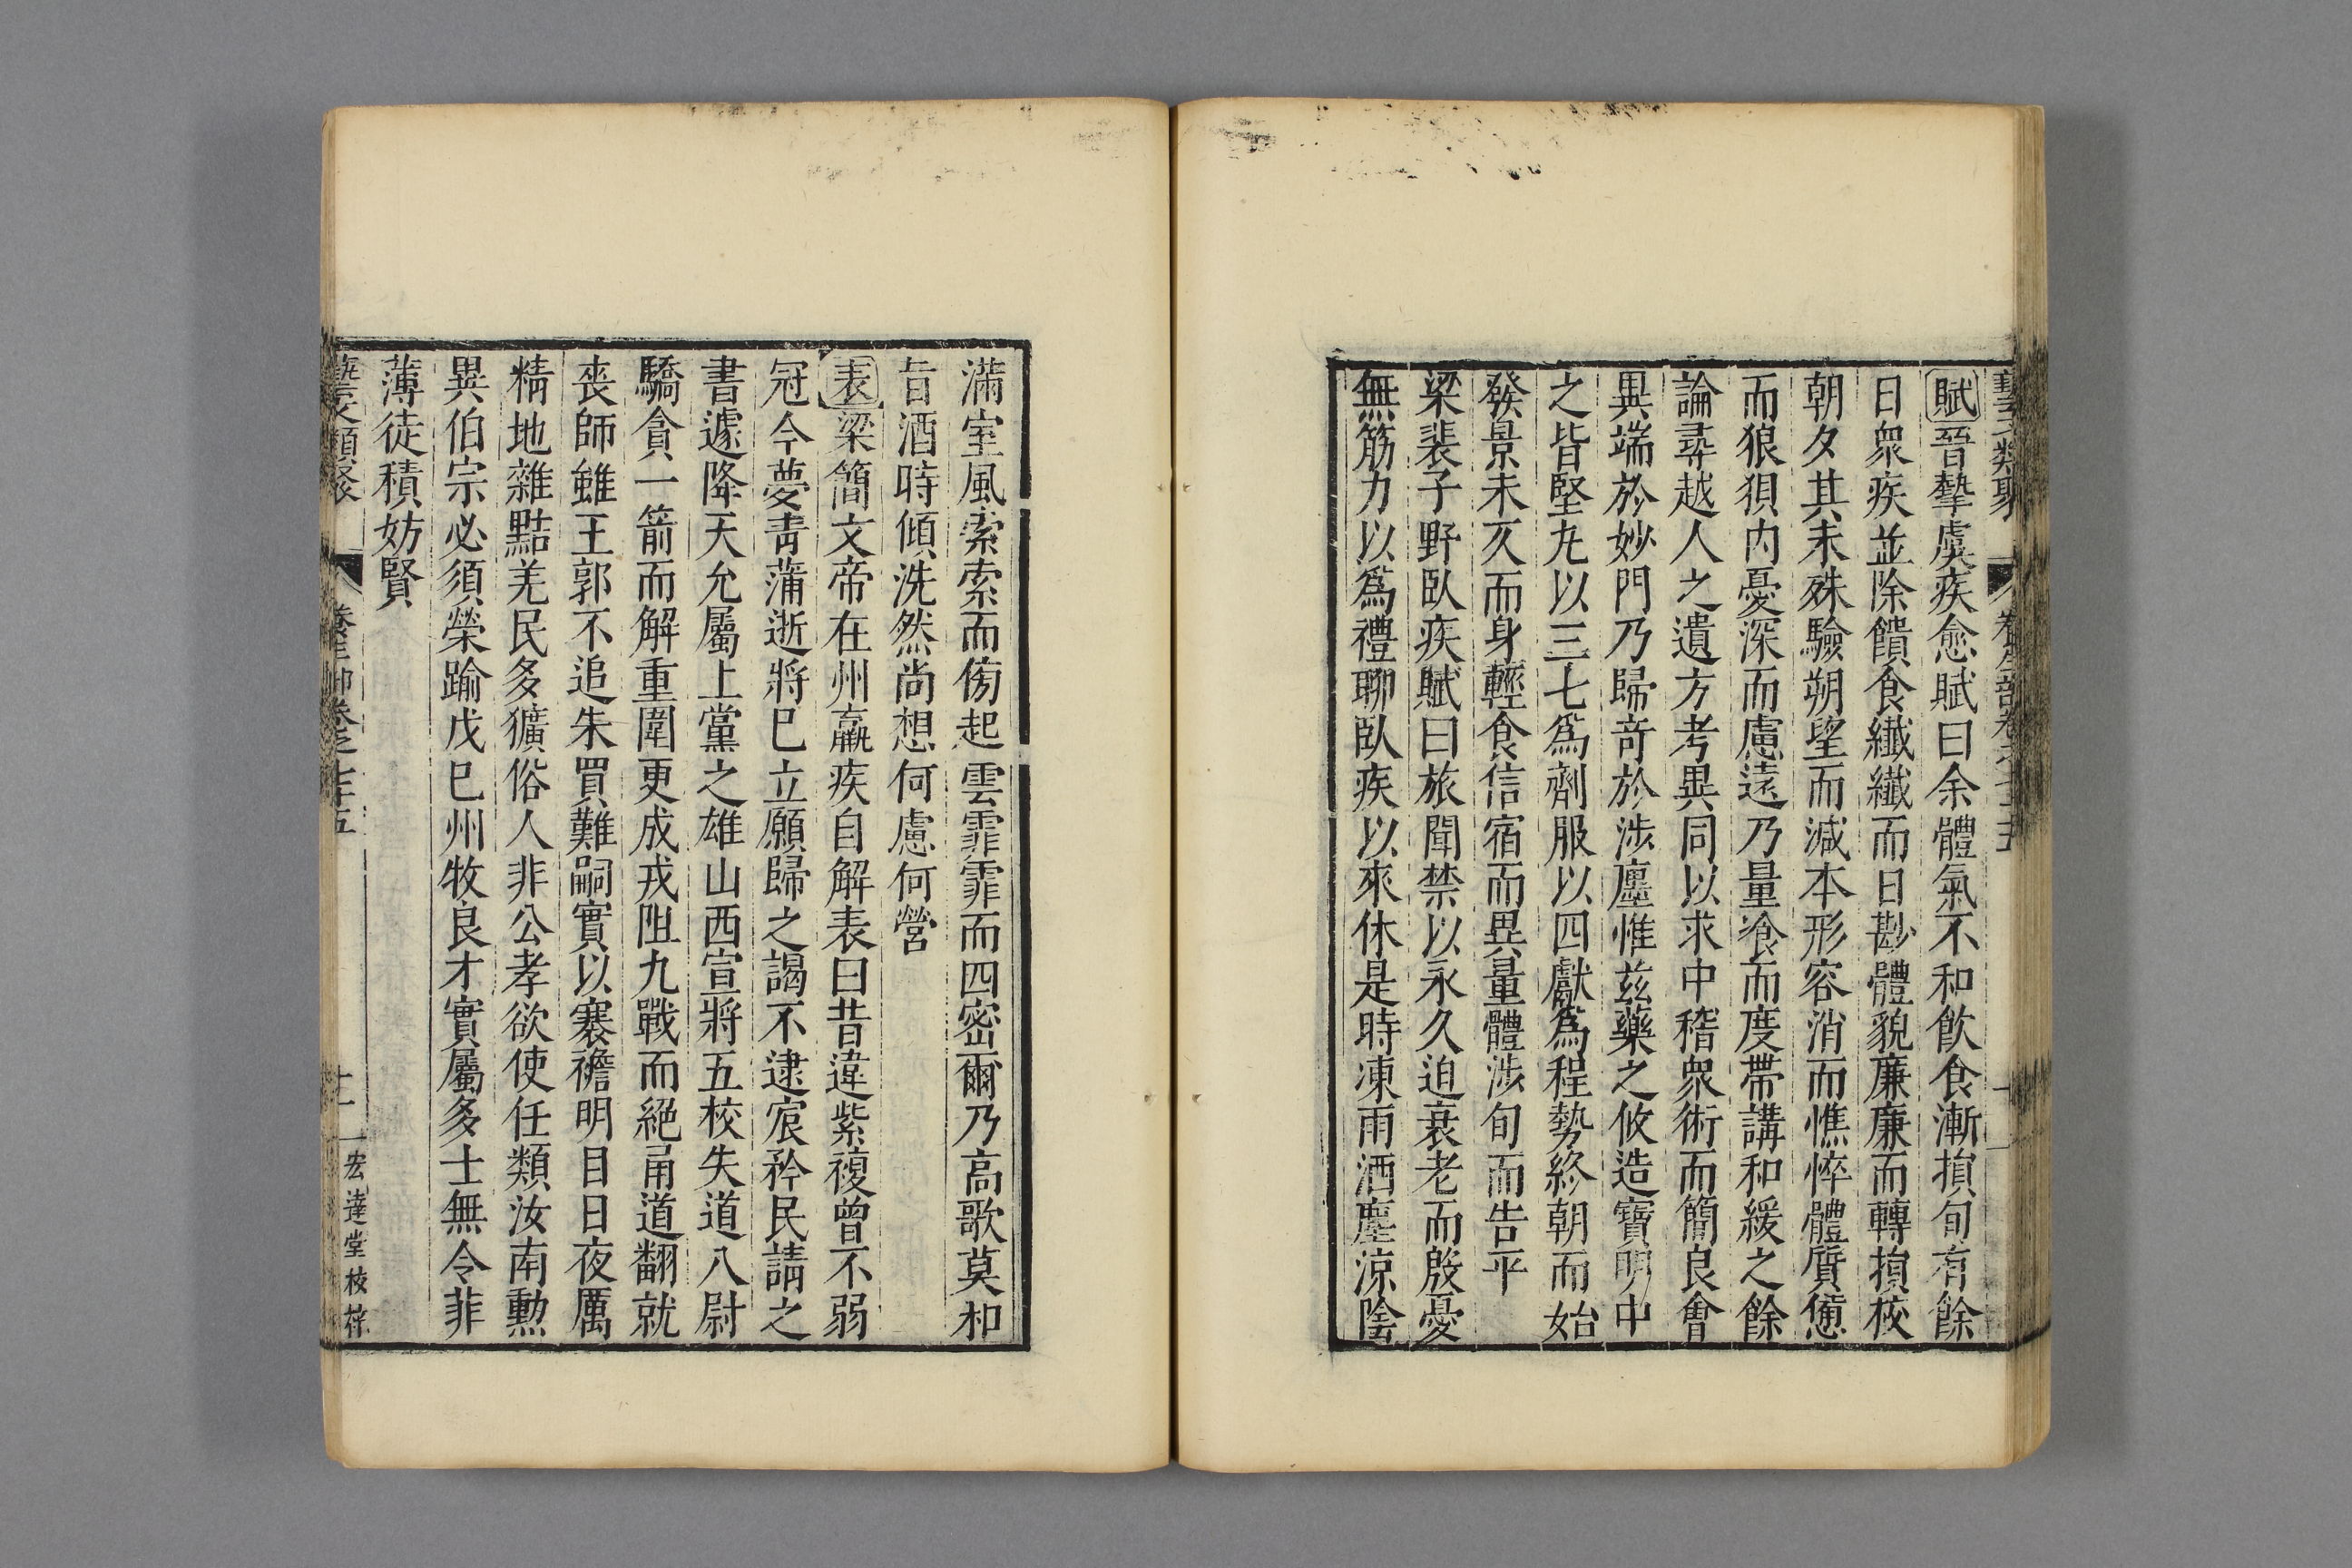 賦晉摯虞疾愈賦曰余體氣不和飲食漸損旬有餘
日衆疾並除饋食纖纖而日尠體貌廉廉而轉損校
朝夕其未殊驗朔望而減本形容消而憔悴體質憊
而狼狽内憂深而慮遠乃量飡而度帶講和緩之餘
論尋越人之遺方考異同以求中稽衆術而簡良會
異端於妙門乃歸竒於涉廛惟茲藥之攸造寶明中
之皆堅丸以三七爲劑服以四獻爲程勢終朝而始
發景未亥而身輕食信宿而異量體涉旬而告平
梁裴子野臥疾賦曰旅聞禁以永久迫衰老而殷憂
無筋力以爲禮聊臥疾以來休是時凍雨洒塵涼陰
滿室風索索而傍起雲霏霏而四密爾乃高歌莫和
旨酒時傾洗然尚想何慮何營
表梁簡文帝在州羸疾自解表曰昔違紫複曾不弱
冠今夢靑蒲逝將已立願歸之謁不逮宸矜民請之
書遽降天允屬上黨之雄山西宣將五校失道八尉
驕貪一箭而解重圍更成戎阻九戰而絕甬道翻就
喪師雖王郭不追朱買難嗣實以褰襜明目日夜厲
精地雜點羌民多獷俗人非公孝欲使任類汝南勲
異伯宗必須榮踰戊已州牧良才實屬多士無令菲
薄徒積妨賢
十一
宏達堂校梓